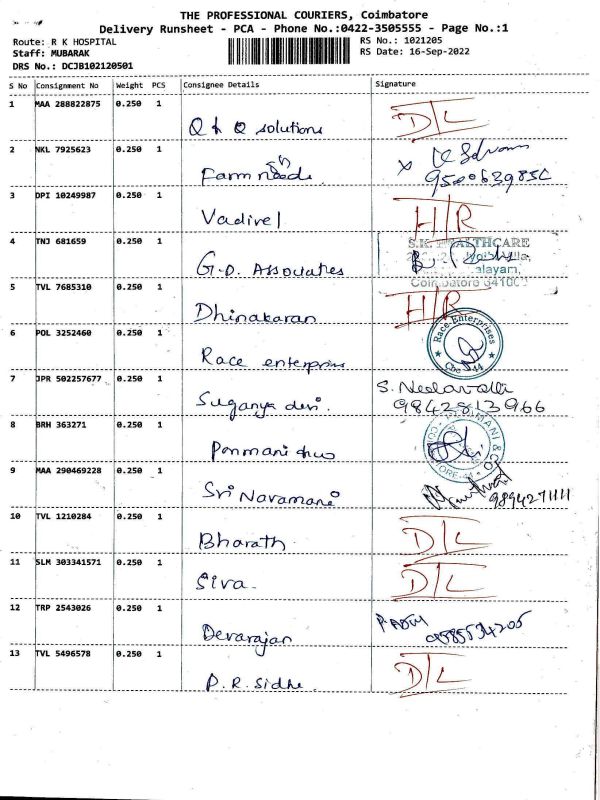 THE PROFESSIONAL COURIERS, Coimbatore
Delivery Runsheet - PCA - Phone No.:0422-3505555 - Page No.:1
Route: R K HOSPITAL
RS No.: 1021205
Staff: MUBARAK
RS Date: 16-Sep-2022
DRS No.: DCJB102120501
S No Consignment No Weight PCS Consignee Details Signature
1 MAA 288822875 0.250 1 D/L
Q & Q solutions
2 NKL 7925623 0.250 1
Farm needs
3 DPI 10249987 0.250 1 H/R
Vadivel
4 TNJ 681659 0.250 1 S.K. HEALTHCARE
G.D. Associates
Coimbatore
5 TVL 7685310 0.250 1 H/R
Dhinakaran
6 POL 3252460 0.250 1 Race Enterprises
Race Cbe 44
7 JPR 502257677 0.250 1 S. Neelavalli
Suganya devi. 9842813966
8 BRH 363271 0.250 1
Ponmani
9 MAA 290469228 0.250 1
Sri Navamani 9894271111
10 TVL 1210284 0.250 1 D/L
Bharath
11 SLM 303341571 0.250 1 D/L
Siva.
12 TRP 2543026 0.250 1
Devarajan
13 TVL 5496578 0.250 1 D/L
P.R. Sidhe